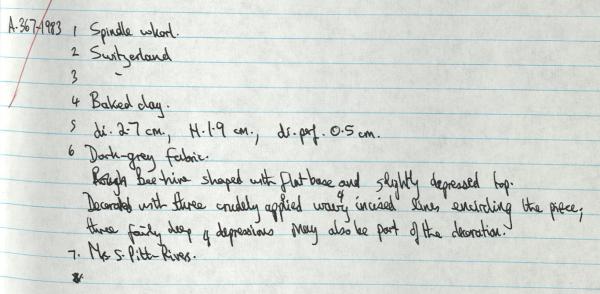 A.367-1983 1 Spindle whorl.
2 Switzerland
3 -
4 Baked clay.
5 di. 2.7 cm, H. 1.9 cm., di. perf. 0.5 cm.
6 Dark-grey fabric.
Rough Bee-hive shaped with flat base and slightly depressed top.
Decorated with three crudely applied wavy incised lines encircling the piece;
three fairly deep depressions may also be part of the decoration.
7. Ms S. Pitt-Rivers.